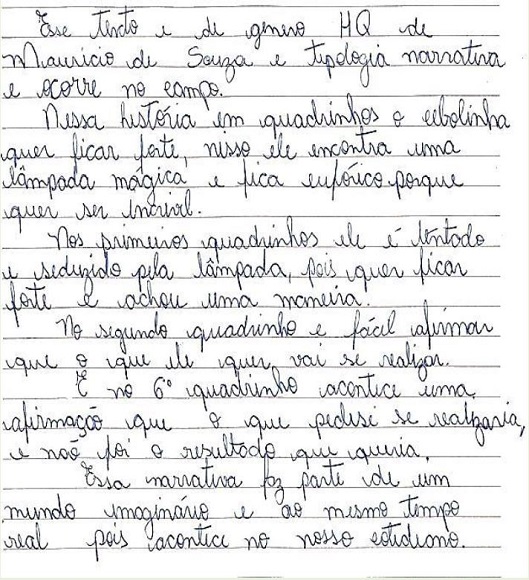 Esse texto e de genero HQ de
Mauricio de Souza e tipologia narrativa
e ocorre no campo.
Nessa história em quadrinhos o cebolinha
quer ficar forte, nisso ele encontra uma
lâmpada mágica e fica eufórico porque
quer ser incrivel.
Nos primeiros quadrinhos ele é tentado
e seduzido pela lâmpada, pois quer ficar
forte e achou uma maneira.
No segundo quadrinho e fácil afirmar
que o que ele quer, vai se realizar.
E no 6º quadrinho acontece uma
afirmação que o que pedisse se realizaria,
e não foi o resultado que queria.
Essa narrativa faz parte de um
mundo imaginário e ao mesmo tempo
real pois acontece no nosso cotidiano.